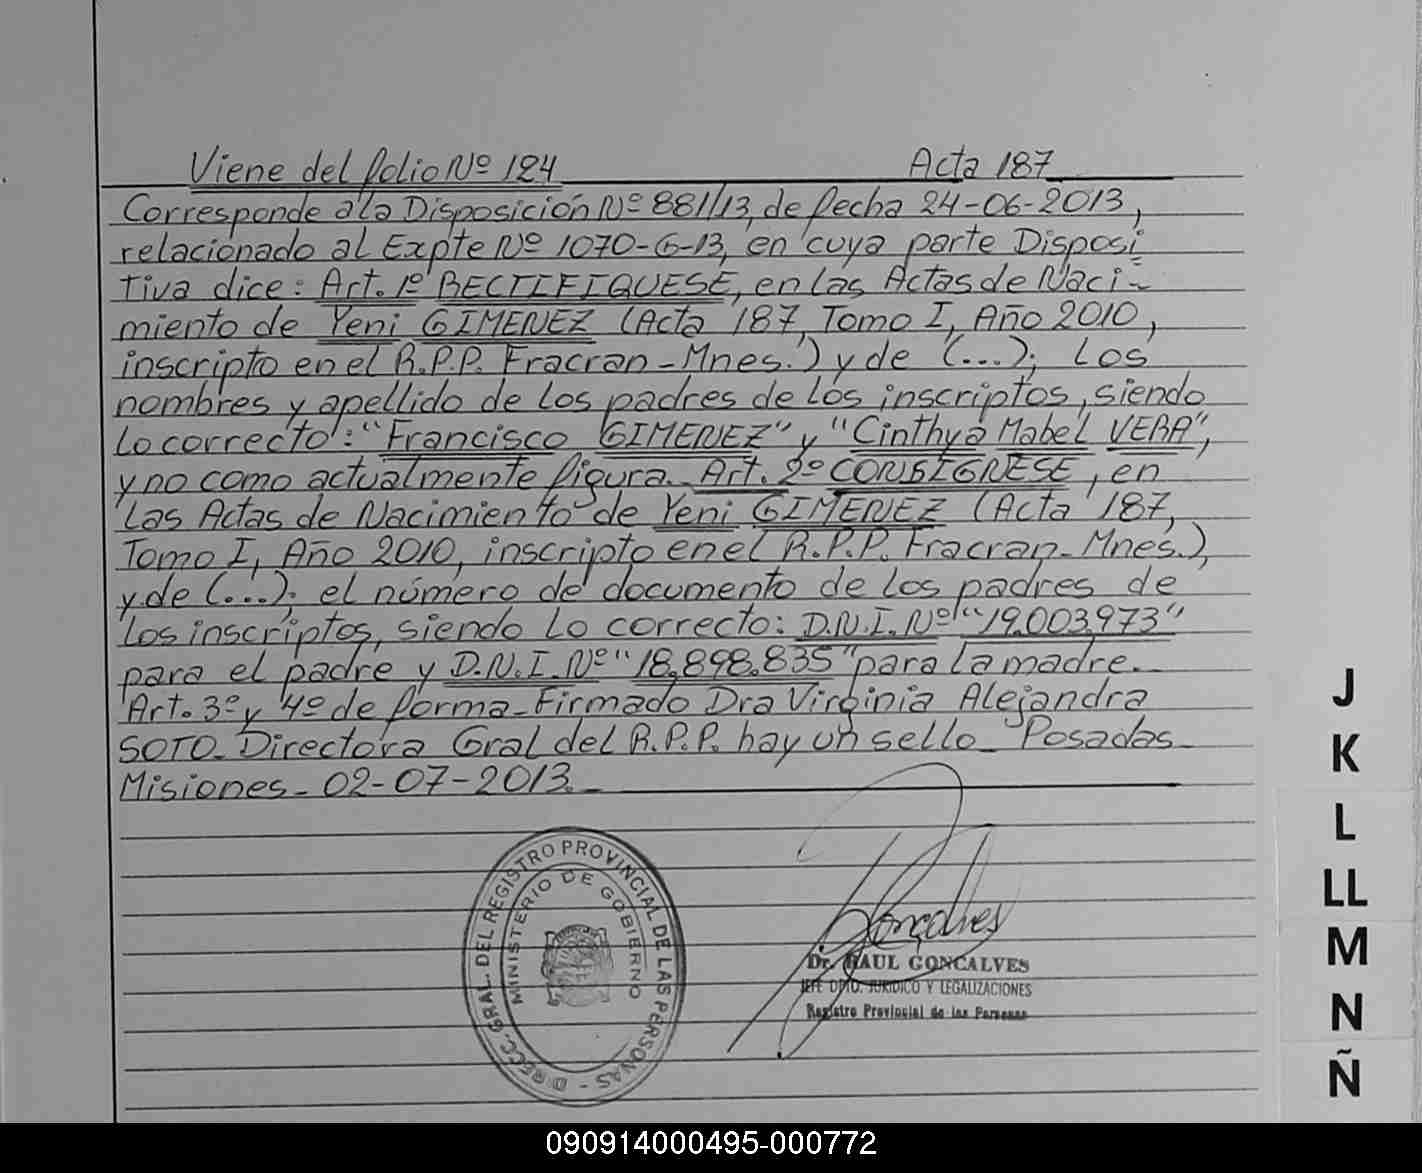 Viene del folio Nº 124 Acta 187
Corresponde a la Disposición Nº 881/13, de fecha 24-06-2013,
relacionado al Expte Nº 1070-G-13, en cuya parte Disposi
tiva dice: Art. 1º RECTIFIQUESE, en las Actas de Naci-
miento de Yeni GIMENEZ (Acta 187, Tomo I, Año 2010,
inscripto en el R.P.P. Fracran-Mnes.) y de (...); los
nombres y apellido de los padres de los inscriptos, siendo
lo correcto: "Francisco GIMENEZ" y "Cinthya Mabel VERA",
y no como actualmente figura. Art. 2º CONSIGNESE, en
las Actas de Nacimiento de Yeni GIMENEZ (Acta 187,
Tomo I, Año 2010, inscripto en el R.P.P. Fracran-Mnes.),
y de (...); el número de documento de los padres de
los inscriptos, siendo lo correcto: D.N.I. Nº "19.003.973"
para el padre y D.N.I. Nº "18.898.835" para la madre.
Art. 3º y 4º de forma-Firmado Dra Virginia Alejandra
SOTO-Directora Gral del R.P.P. hay un sello- Posadas-
Misiones-02-07-2013.-
DIRECC. GRAL. DEL REGISTRO PROVINCIAL DE LAS PERSONAS -
MINISTERIO DE GOBIERNO
Goncalves
Dr. RAUL GONCALVES
JEFE DPTO. JURIDICO Y LEGALIZACIONES
Registro Provincial de las Personas
J
K
L
LL
M
N
Ñ
090914000495-000772